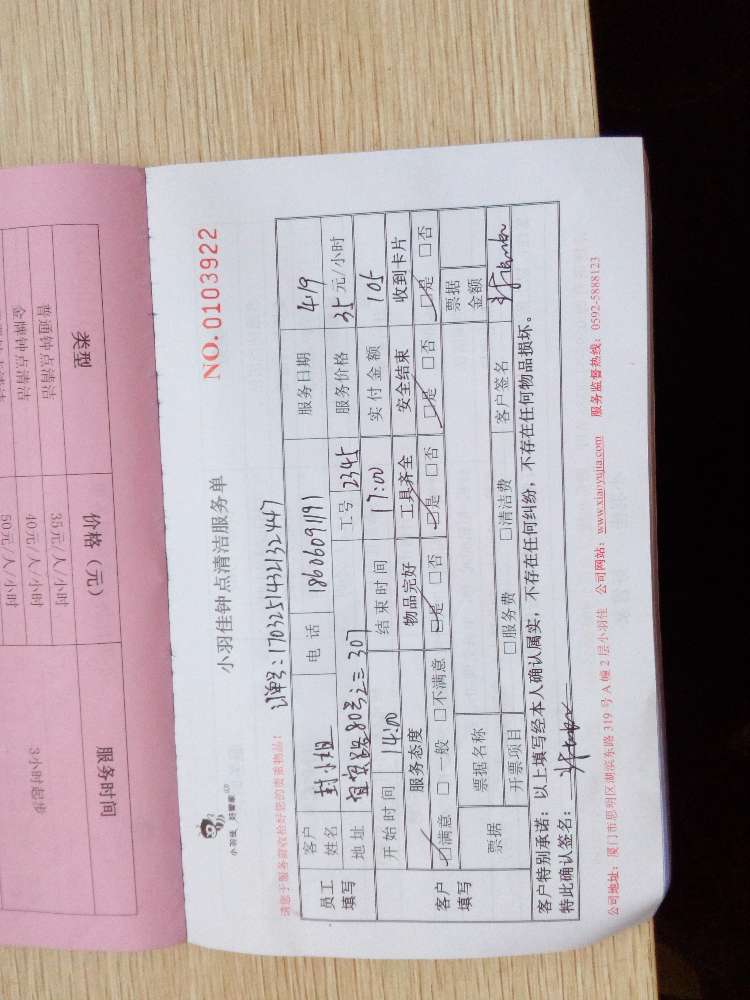 小羽佳 好管家
小羽佳钟点清洁服务单
NO.0103922
请您于服务前收拾好您的贵重物品!
订单号:1703251432132447
员工填写
客户姓名 封小姐 电话 18606091191 服务日期 4.19
地址 80号之三307 工号 2345 服务价格 35元/小时
开始时间 14:00 结束时间 17:00 实付金额 105
客户填写
服务态度 物品完好 工具齐全 安全结束 收到卡片
☑满意 □一般 □不满意 ☑是 □否 ☑是 □否 ☑是 □否 ☑是 □否
票据 票据名称 票据金额
开票项目 □服务费 □清洁费 客户签名
客户特别承诺:以上填写经本人确认属实,不存在任何纠纷,不存在任何物品损坏。
特此确认签名:
公司地址:厦门市思明区湖滨东路319号A幢2层小羽佳 公司网站:www.xiaoyujia.com 服务监督热线:0592-5888123
类型 价格(元) 服务时间
普通钟点清洁 35元/人/小时 3小时起步
金牌钟点清洁 40元/人/小时
50元/人/小时